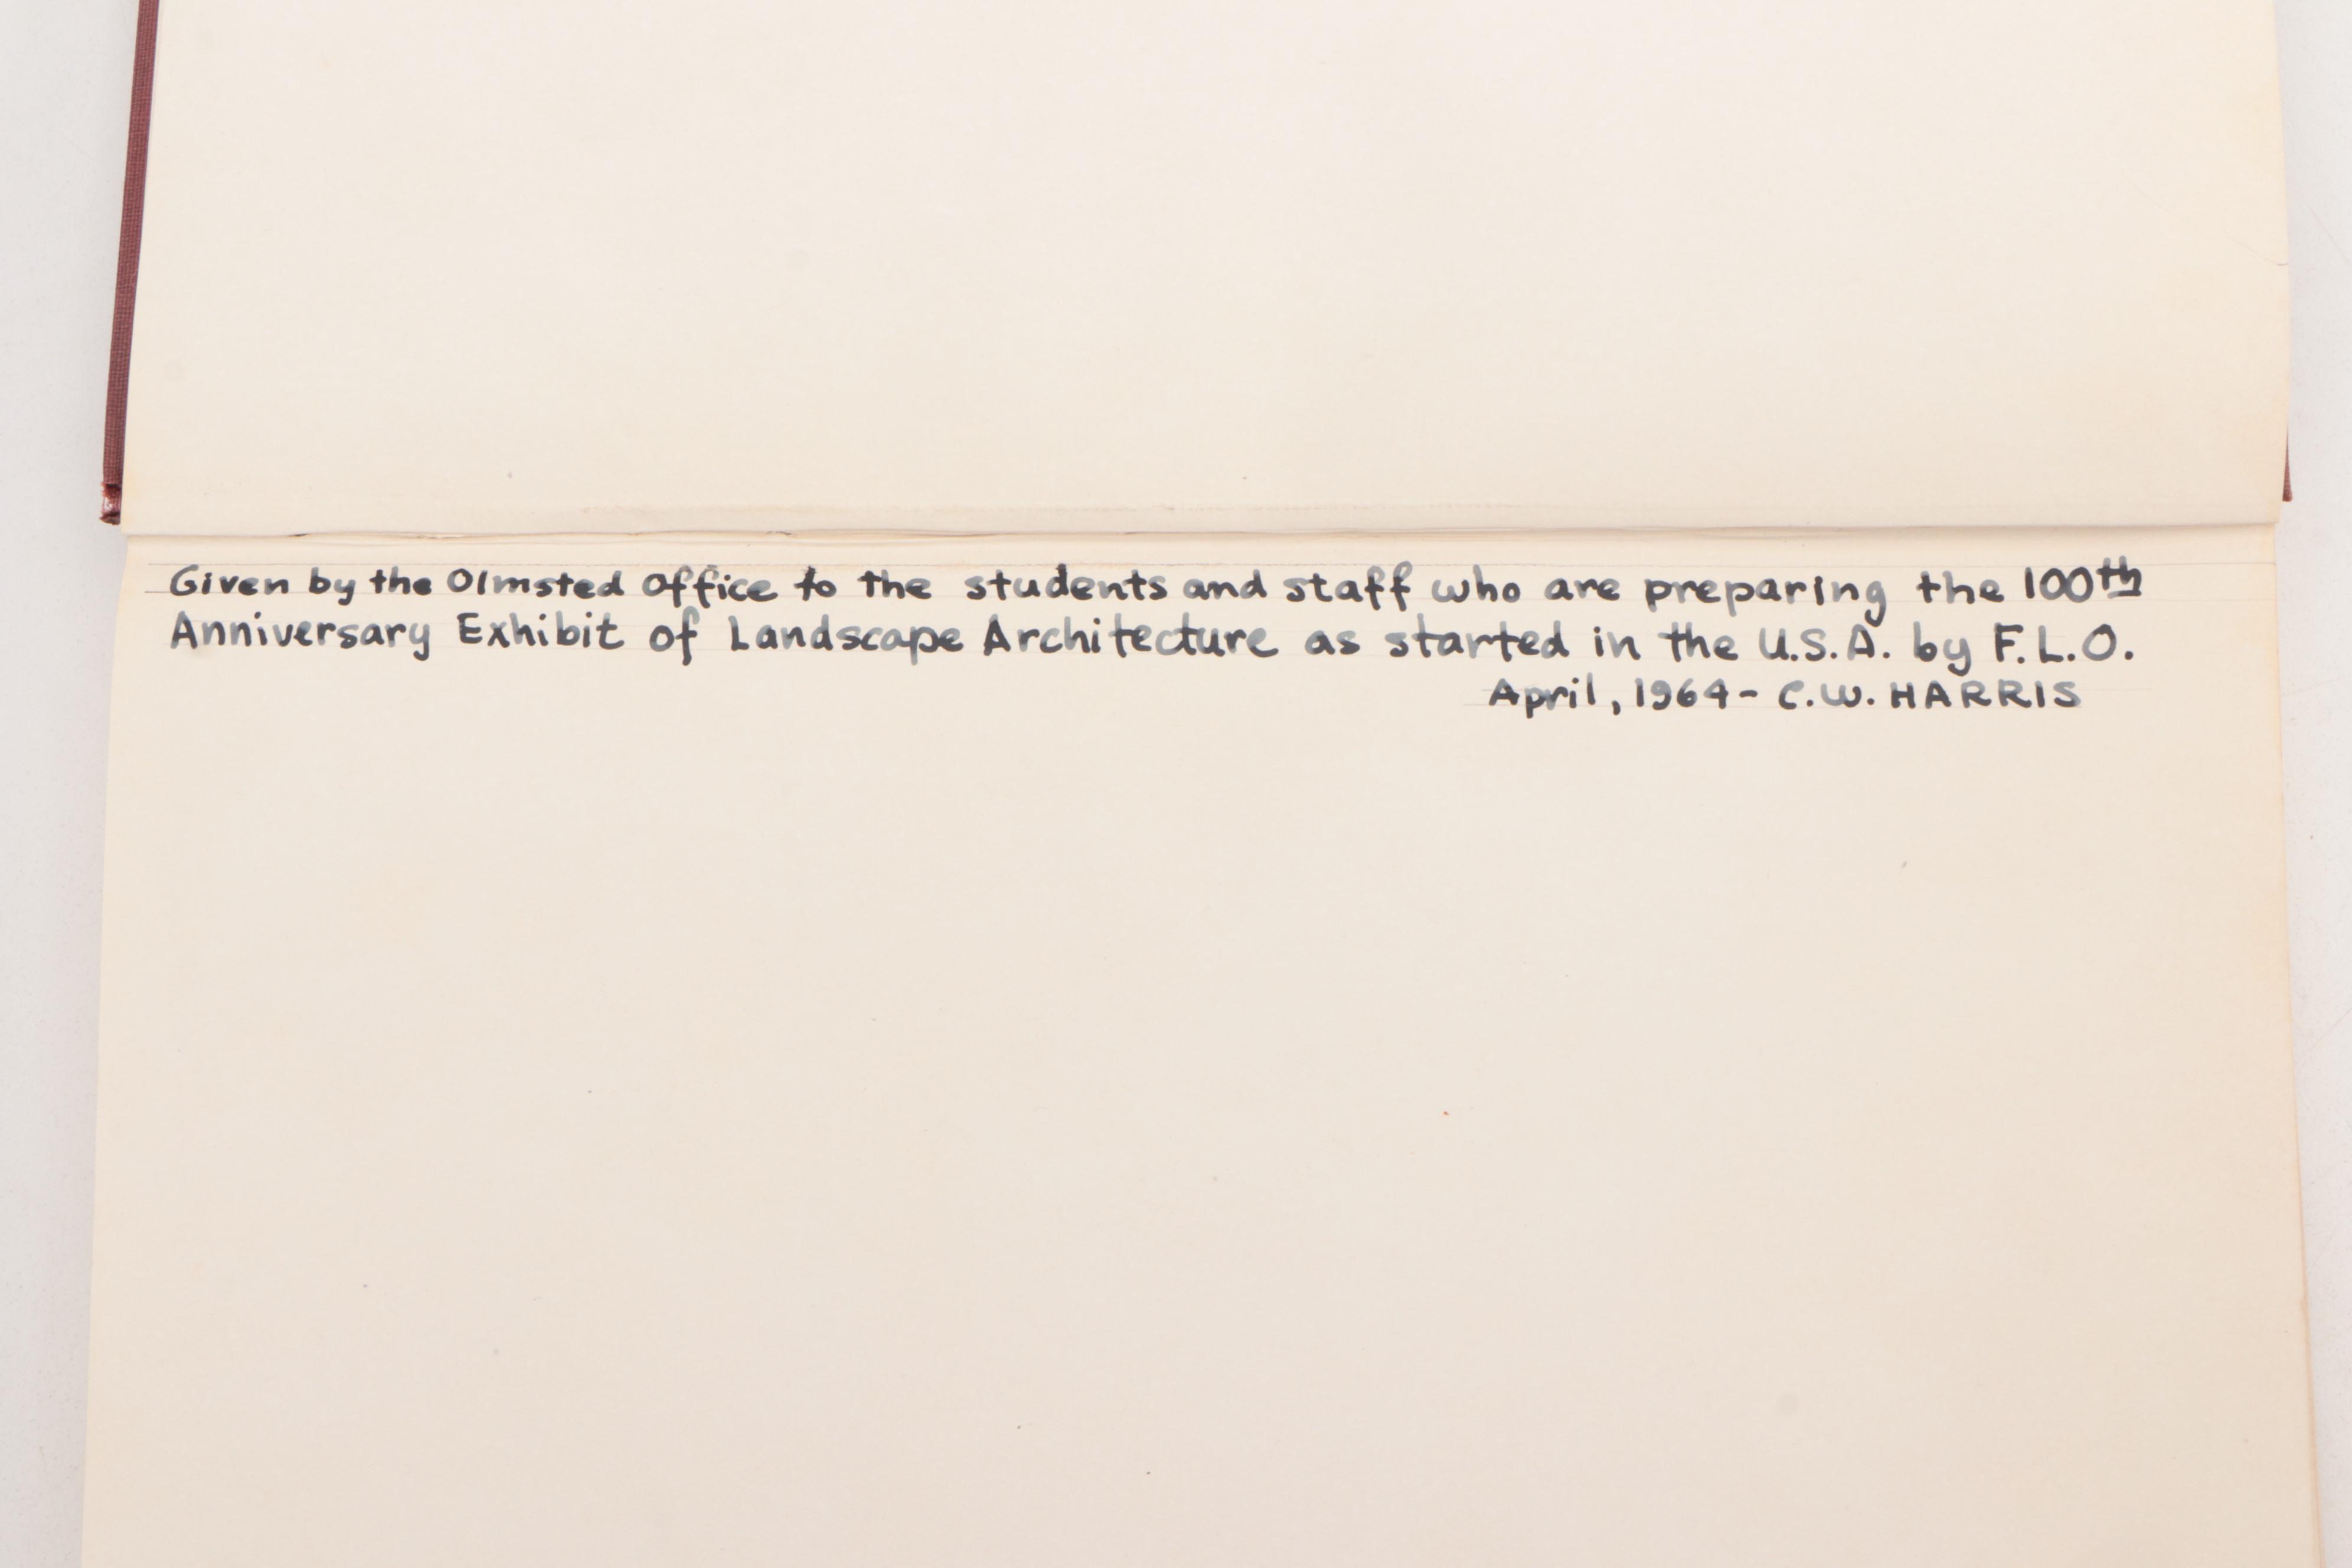 Given by the Olmsted Office to the students and staff who are preparing the 100th
Anniversary Exhibit of Landscape Architecture as started in the U.S.A. by F.L.O.
April, 1964 - C.W. HARRIS